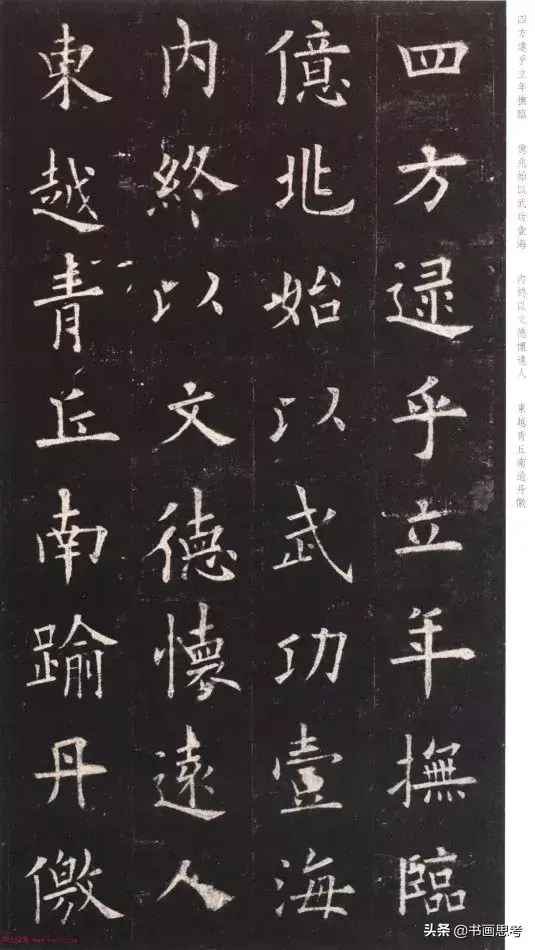 四方逮乎立年撫臨
億兆始以武功壹海
內終以文德懷遠人
東越青丘南踰丹儌
四方逮乎立年撫臨 億兆始以武功壹海 內終以文德懷遠人 東越青丘南逾丹儌
头条 @书画思考